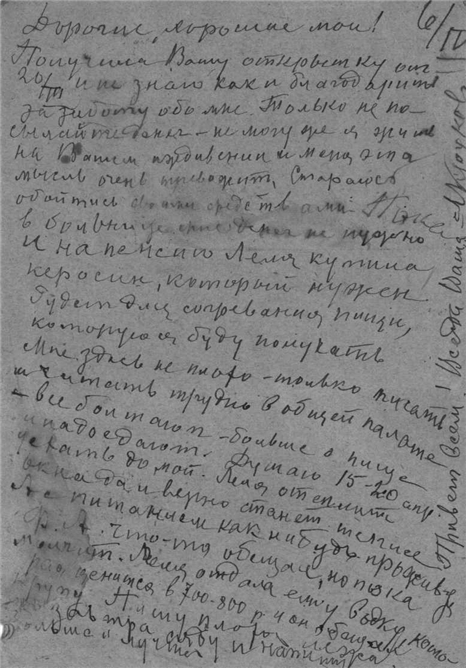 6/IV
Дорогие, хорошие мои!
Получила Вашу открытку от
20/III и не знаю как и благодарить
за заботу обо мне. Только не по-
сылайте денег – не могу же я жить
на Вашем иждивении и меня эта
мысль очень тревожит. Стараюсь
обойтись своими средствами. Пока
в больнице мне денег не нужно
И на пенсию Леля купила
керосин, который нужен
будет для согревания пищи,
которую я буду получать
Мне здесь не плохо – только писать
и читать трудно в общей палате
– все болтают – больше о пище
и надоедают. Думаю 15–20 апр
уехать домой. Леля отеплит
окна да и верно станет теплее
А с питанием как нибудь проживу
что-то обещал, но пока
молчит. Леля отдала ему водку, кото-
рая ценится в 700-800 р и он обещал
крупу. Пишу плохо, лежа
завтра сяду и напишу
больше и лучше
Привет всем! Всегда Ваша